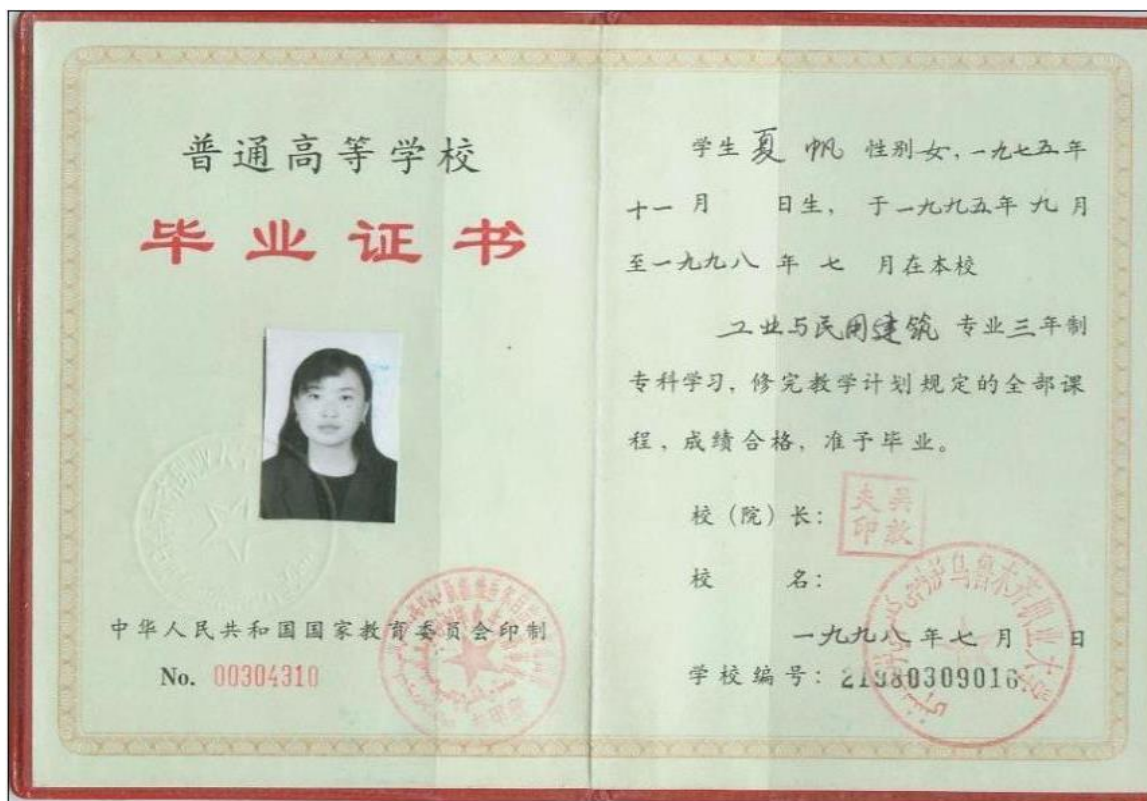 普通高等学校
毕业证书
中华人民共和国国家教育委员会印制
No. 00304310
学生 夏 帆 性别女，一九七五年
十一 月 日生， 于一九九五年 九 月
至一九九八 年 七 月在本校
工业与民用建筑 专业三年制
专科学习，修完教学计划规定的全部课
程，成绩合格，准予毕业。
校（院）长：
校 名：
乌鲁木齐职业大学
一九九八 年七 月 日
学校编号：21980309016